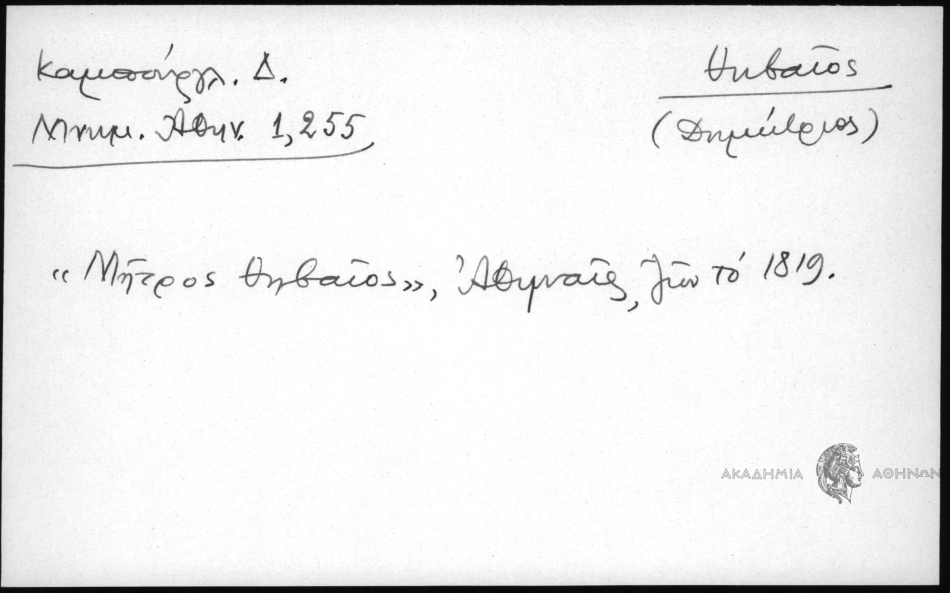 Καμπούργλ. Δ.
Μνημ. Ἀθην. 1,255
Θηβαῖος
(Δημήτριος)
«Μῆτρος Θηβαῖος», Ἀθηναῖος, ζῶν τό 1819.
ΑΚΑΔΗΜΙΑ ΑΘΗΝΩΝ